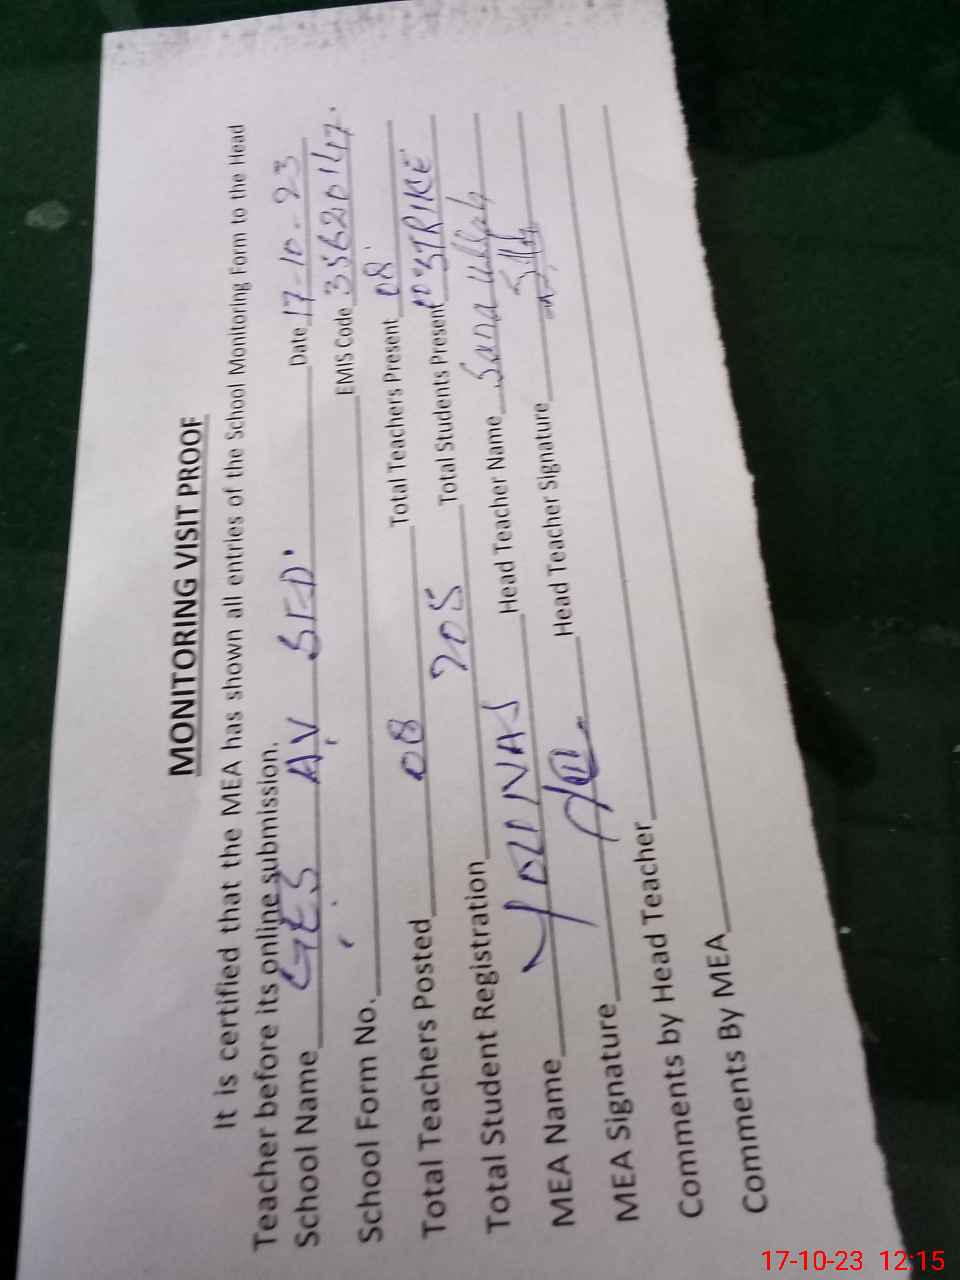 MONITORING VISIT PROOF
It is certified that the MEA has shown all entries of the School Monitoring Form to the Head
Teacher before its online submission.
School Name GES AV Date 17-10-23
School Form No. EMIS Code 35620147
Total Teachers Posted 08 Total Teachers Present 08
Total Student Registration 205 Total Students Present STRIKE
MEA Name Head Teacher Name Sana Ullah
MEA Signature Head Teacher Signature
Comments by Head Teacher
Comments By MEA
17-10-23 12:15